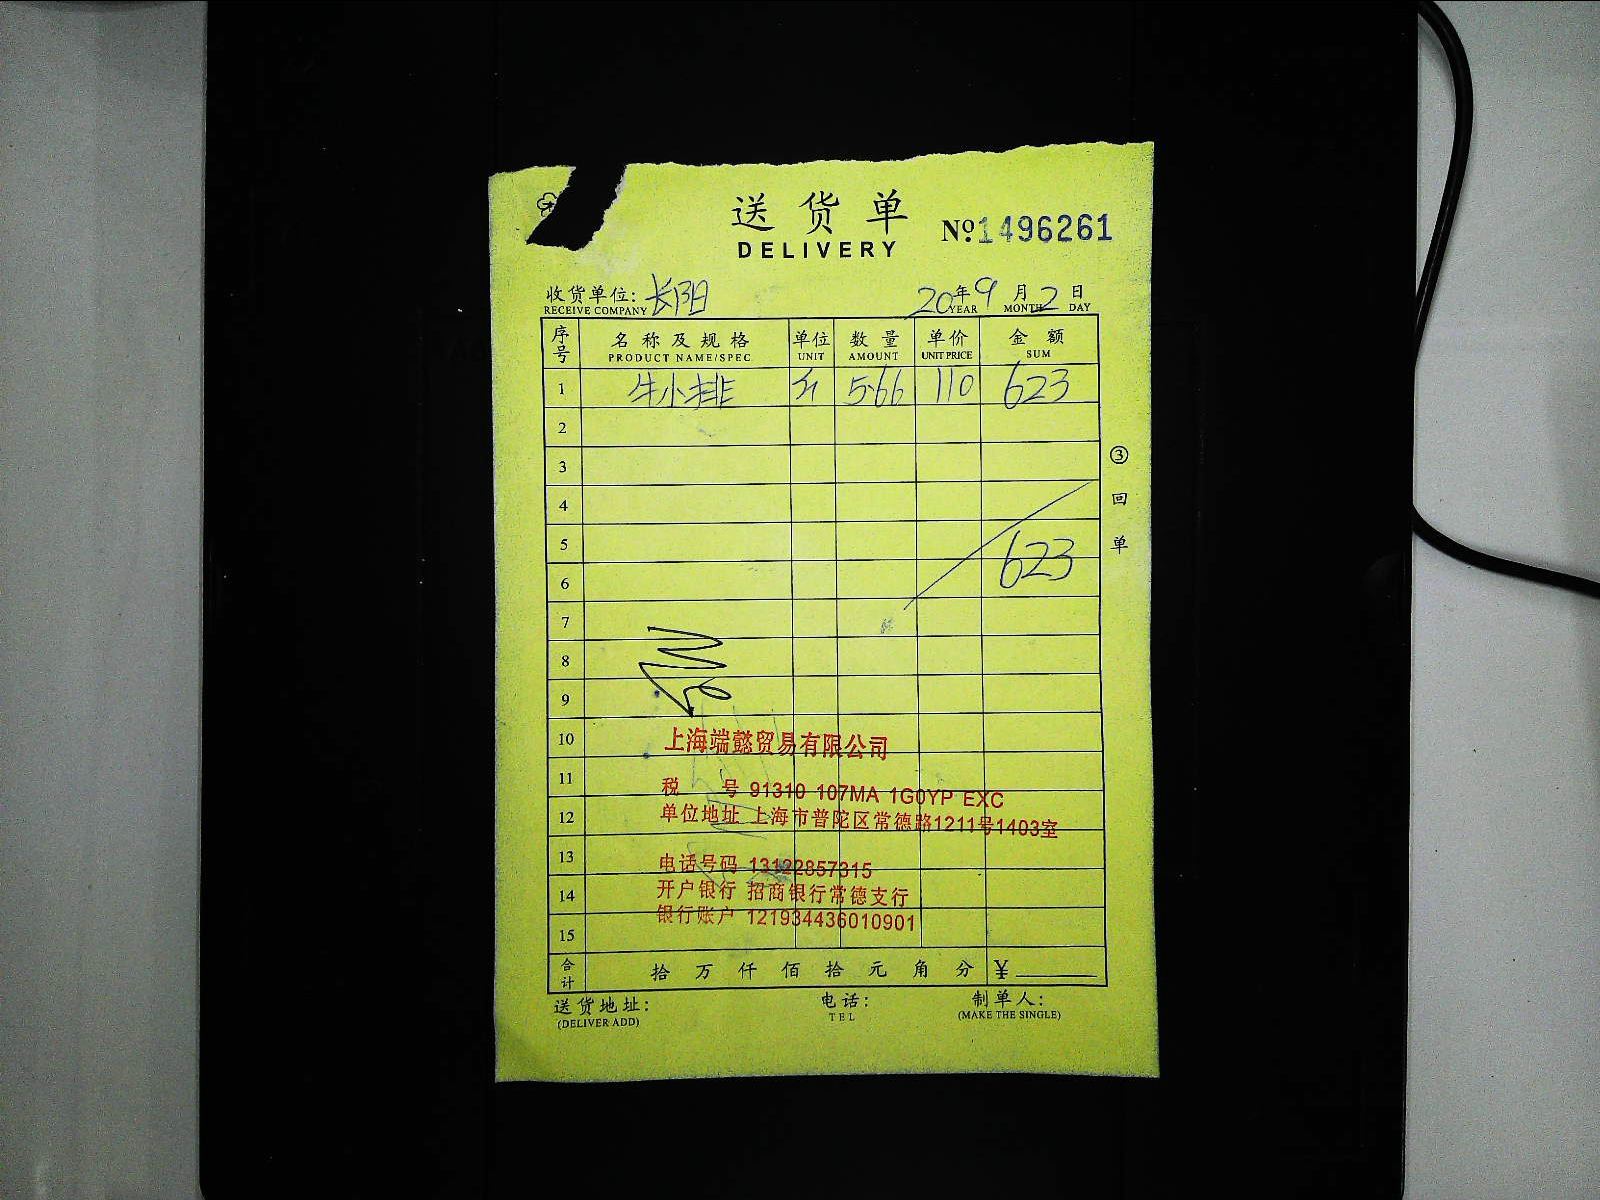 送货单
DELIVERY
№1496261
收货单位: 长阳 20年9月2日
RECEIVE COMPANY YEAR MONTH DAY
序号 名称及规格 单位 数量 单价 金额
PRODUCT NAME/SPEC UNIT AMOUNT UNIT PRICE SUM
1 牛小排 斤 5.66 110 623
2
3
4
5
623
6
7
8
9
10
上海端懿贸易有限公司
11
税 号 91310 107MA 1G0YP EXC
12
单位地址 上海市普陀区常德路1211号1403室
13
电话号码 13122857315
14
开户银行 招商银行常德支行
银行账户 121934436010901
15
合计 拾 万 仟 佰 拾 元 角 分 ¥
送货地址: 电话: 制单人:
(DELIVER ADD) TEL (MAKE THE SINGLE)
③回单